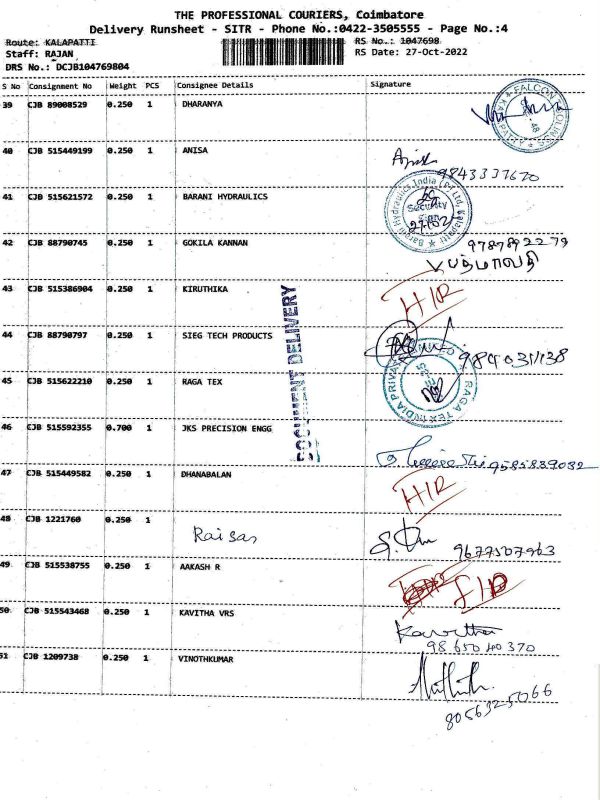 THE PROFESSIONAL COURIERS, Coimbatore
Delivery Runsheet - SITR - Phone No.:0422-3505555 - Page No.:4
Route: KALAPATTI RS No.: 1047698
Staff: RAJAN RS Date: 27-Oct-2022
DRS No.: DCJB104769804
S No Consignment No Weight PCS Consignee Details Signature
39 CJB 89008529 0.250 1 DHARANYA
FALCON
40 CJB 515449199 0.250 1 ANISA
9843337670
41 CJB 515621572 0.250 1 BARANI HYDRAULICS
Barani Hydraulics India (P) Ltd, Kalapatti
Security
42 CJB 88790745 0.250 1 GOKILA KANNAN 9787892279
பத்மாவதி
43 CJB 515386904 0.250 1 KIRUTHIKA H/R
DOCUMENT DELIVERY
44 CJB 88790797 0.250 1 SIEG TECH PRODUCTS
9840311138
45 CJB 515622210 0.250 1 RAGA TEX
RAGA TEX INDIA PRIVATE LIMITED
46 CJB 515592355 0.700 1 JKS PRECISION ENGG
9585839032
47 CJB 515449582 0.250 1 DHANABALAN H/R
48 CJB 1221760 0.250 1 Raisas
9677507963
49 CJB 515538755 0.250 1 AAKASH R
50 CJB 515543468 0.250 1 KAVITHA VRS Kavitha
9865040370
51 CJB 1209738 0.250 1 VINOTHKUMAR
8056325066